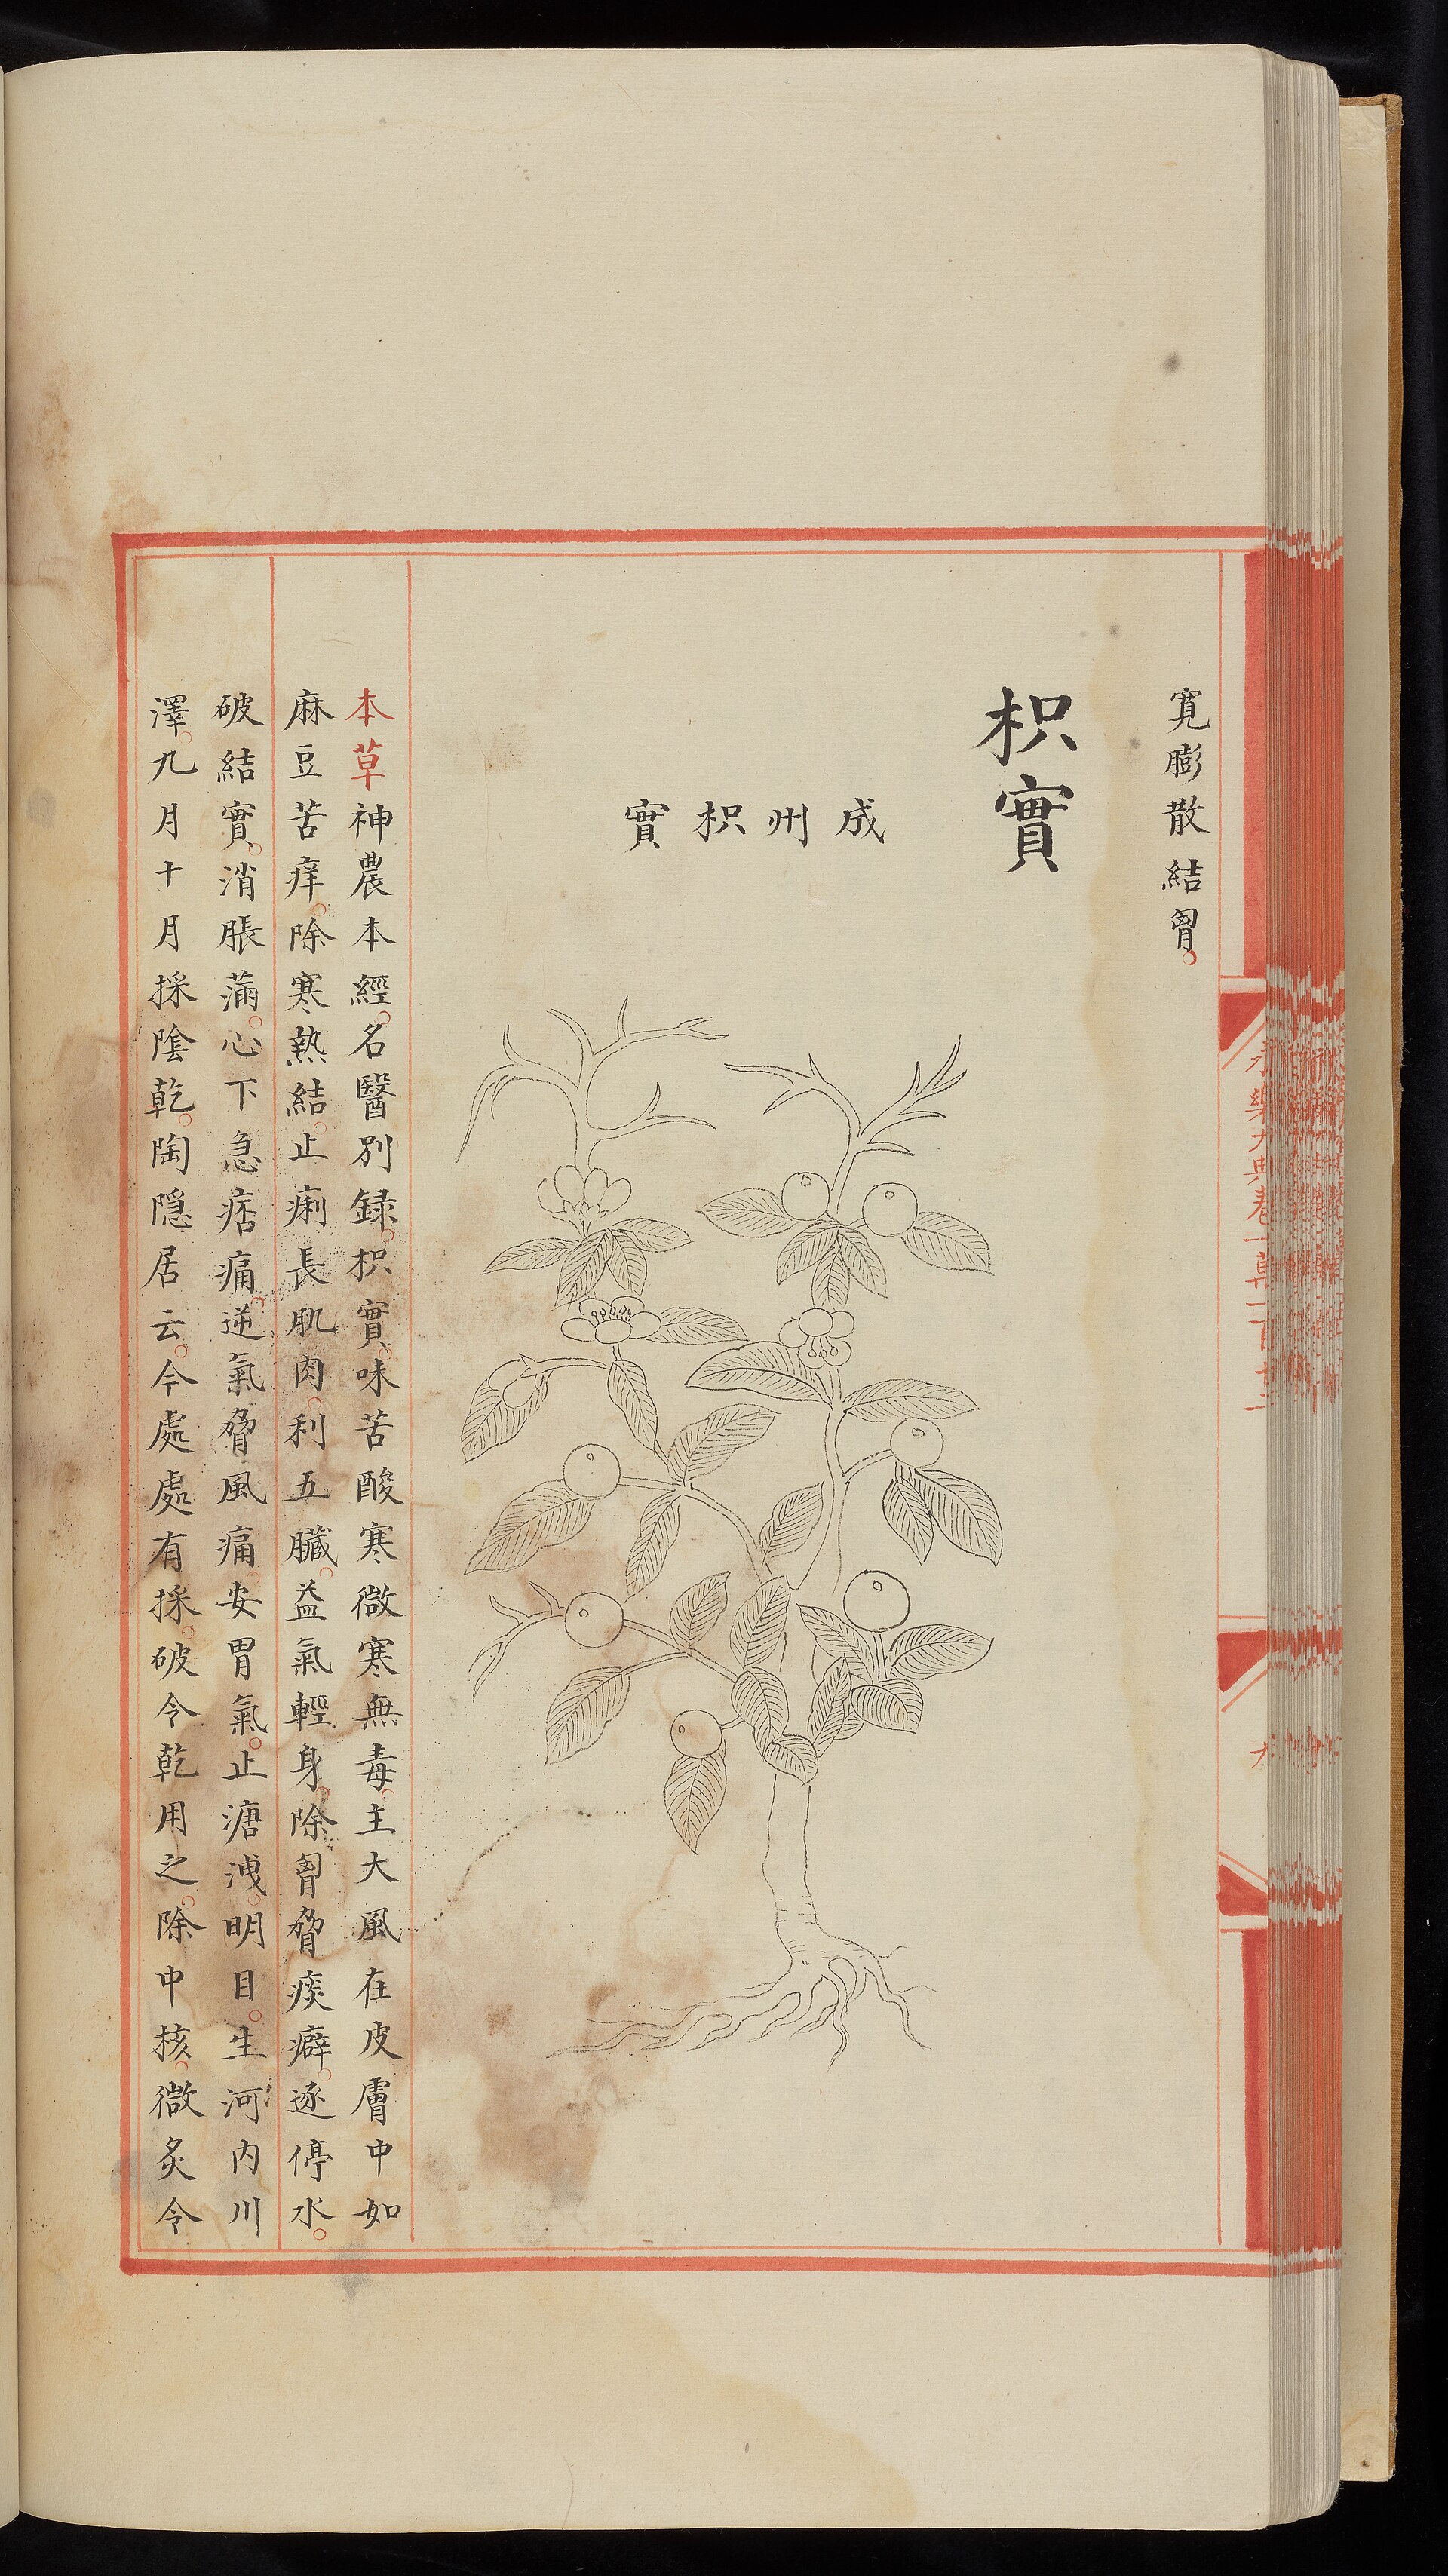 寛膨散結胷
枳實
成州枳實
本草神農本經名醫別録枳實味苦酸寒微寒無毒主大風在皮膚中如
麻豆苦痒除寒熱結止痢長肌肉利五臟益氣輕身除胷脅痰癖逐停水
破結實消脹滿心下急痞痛逆氣脅風痛安胃氣止溏洩明目生河内川
澤九月十月採陰乾陶隱居云今處處有採破令乾用之除中核微炙令